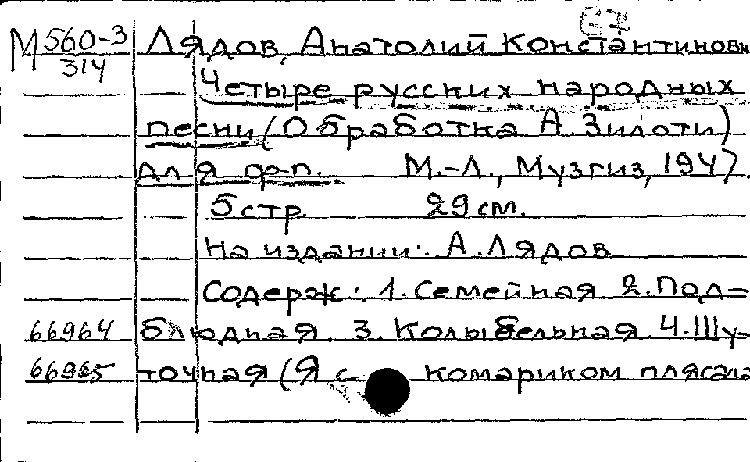 М 560-3
314
Лядов, Анатолий Константинови
Четыре русских народных
песни (Обработка А. Зилоти)
для ф-п. М.-Л., Музгиз, 1947.
5 стр 29 см.
На издании: А. Лядов
Содерж: 1. Семейная 2. Под=
66964 блюдная 3. Колыбельная 4. Шу-
66965 точная (Я с комариком плясала